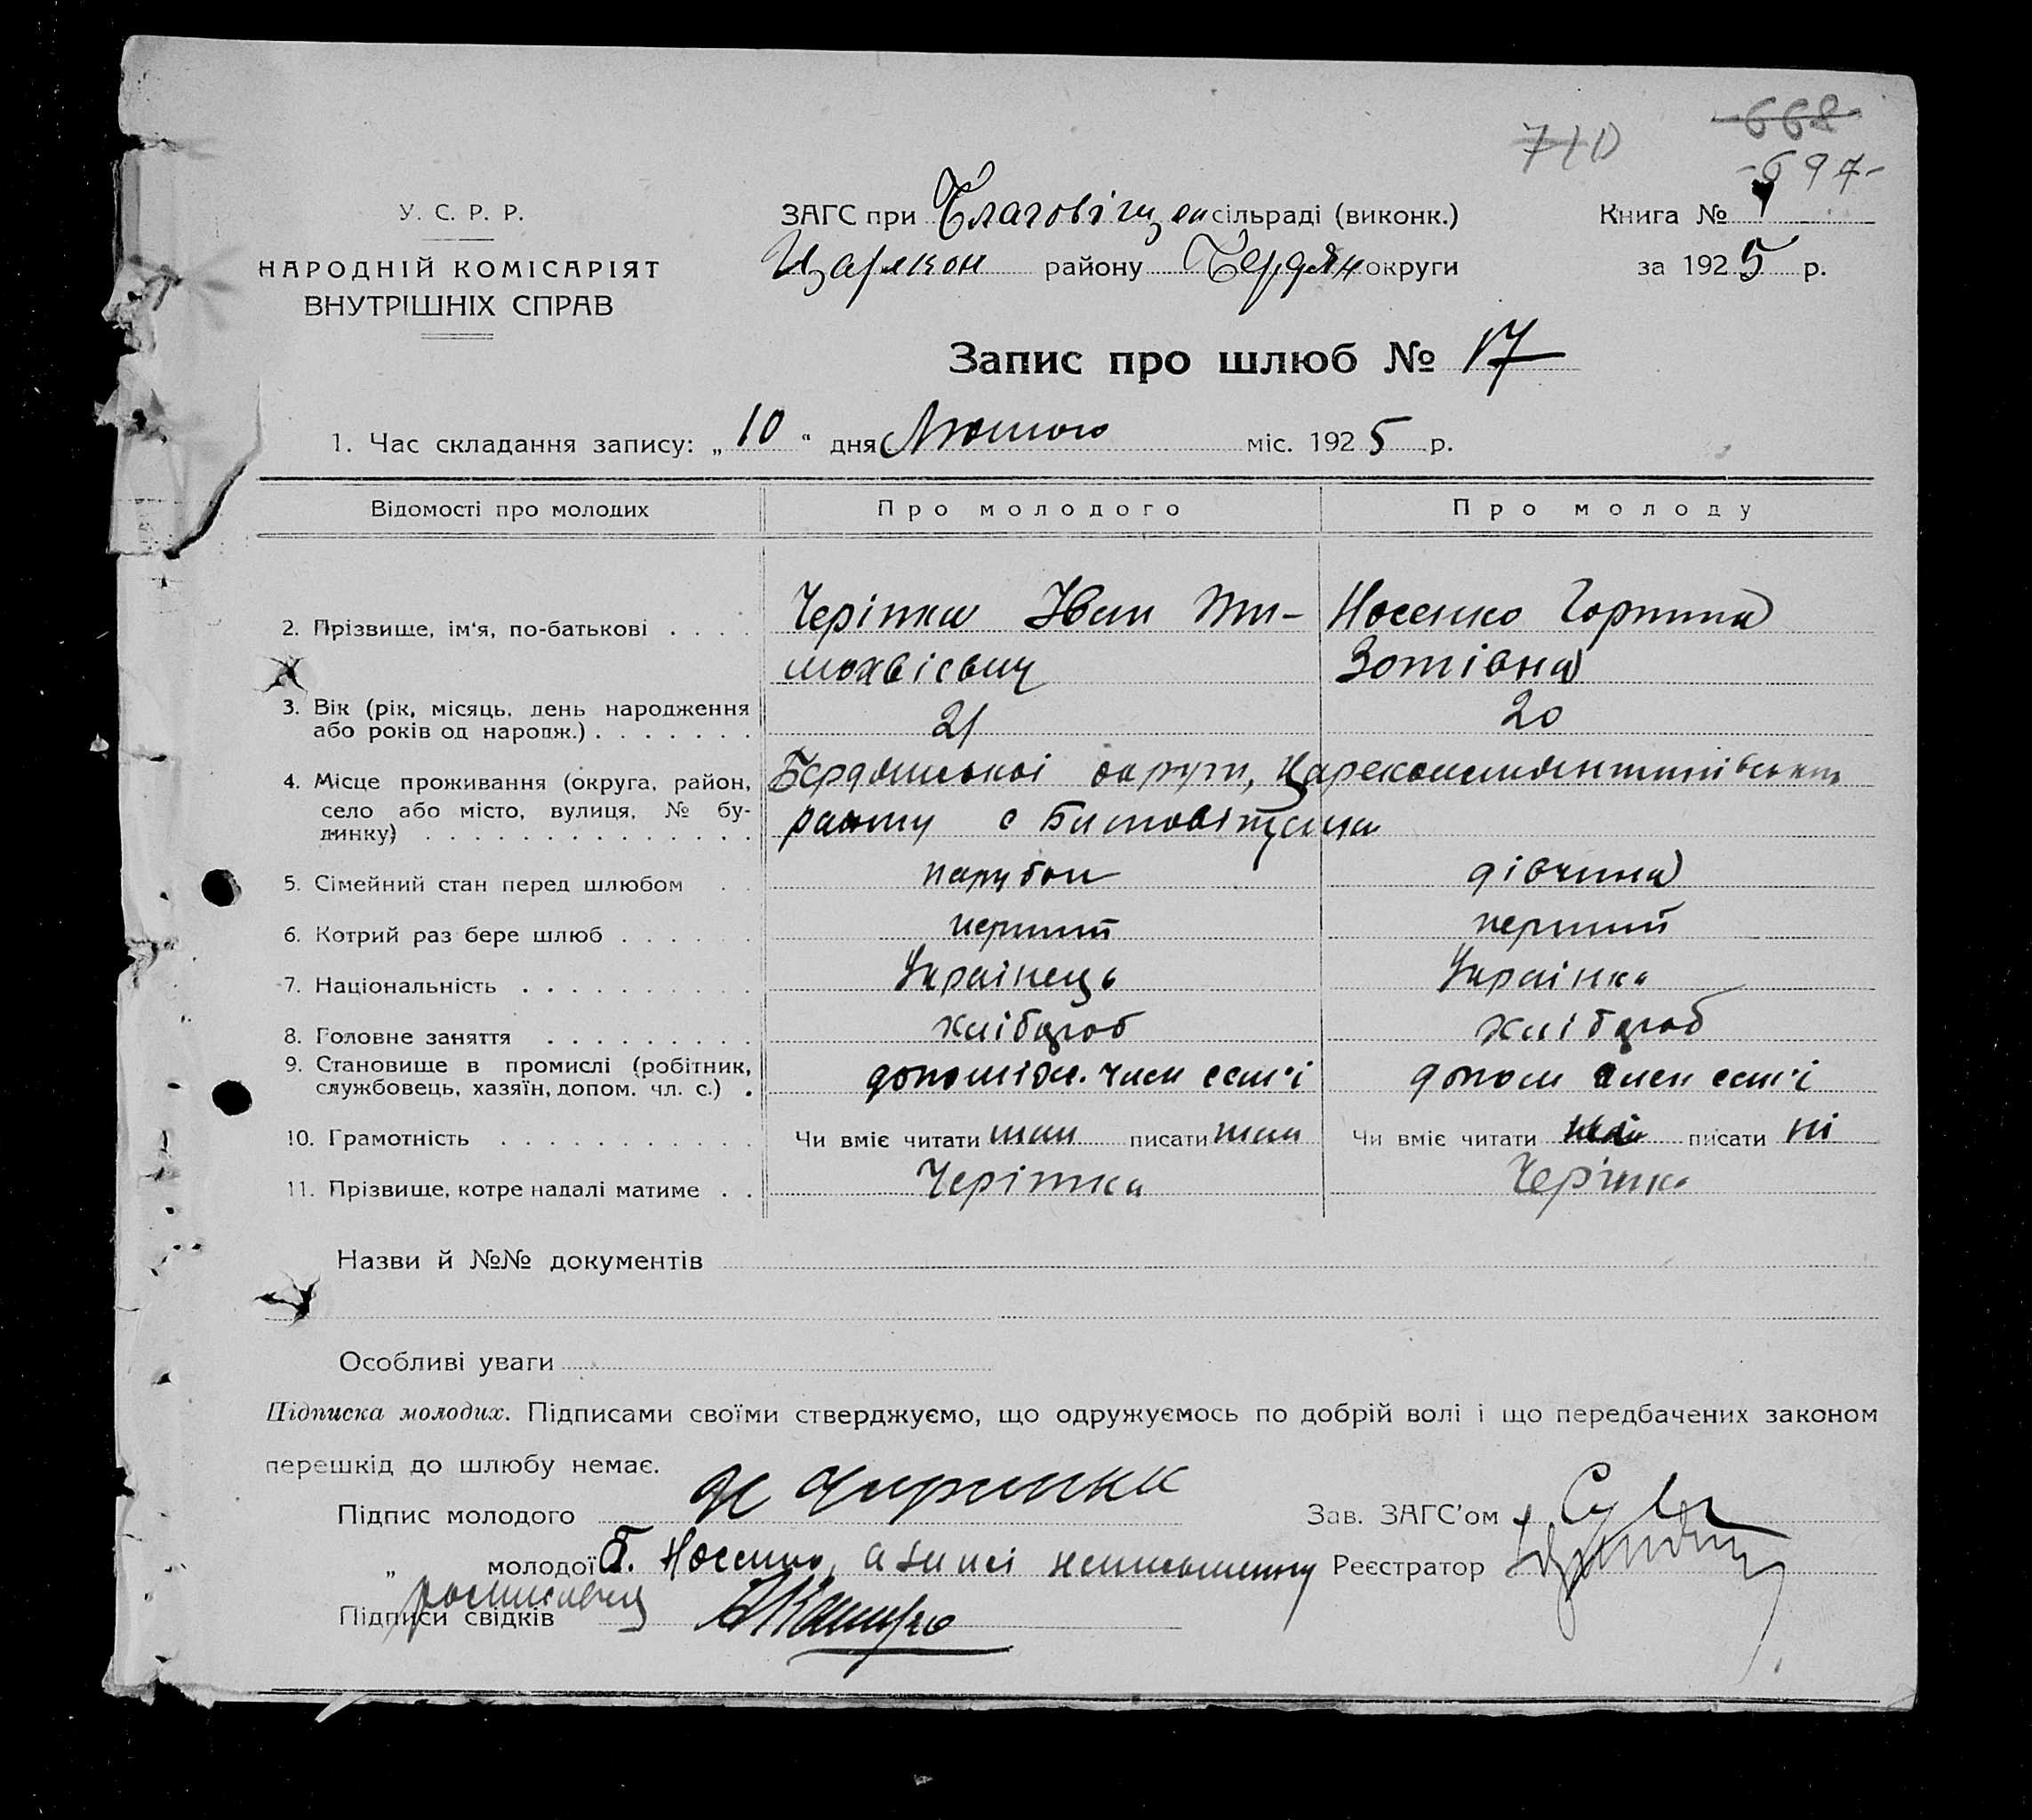 710 668
-697-
У. С. Р. Р. ЗАГС при Благовіщен сільраді (виконк.) Книга № 1
НАРОДНІЙ КОМІСАРІЯТ Царекон району Бердян округи за 1925 р.
ВНУТРІШНІХ СПРАВ
Запис про шлюб № 17
1. Час складання запису: „10" дня Лютого міс. 1925 р.
Відомості про молодих Про молодого Про молоду
2. Прізвище, ім'я, по-батькові Черіпка Іван Ти- Носенко Горпина
мохвієвич Зотівна
3. Вік (рік, місяць, день народження
або років од нородж.) 21 20
4. Місце проживання (округа, район, Бердянськоі округи, Цареконстантинівського
село або місто, вулиця, № бу-
динку) району с
5. Сімейний стан перед шлюбом парубок дівчина
6. Котрий раз бере шлюб перший перший
7. Національність Украінець Украінка
8. Головне заняття хлібороб хлібороб
9. Становище в промислі (робітник,
службовець, хазяїн, допом. чл. с.) допоміж. член сем'ї допом член сем'ї
10. Грамотність Чи вміє читати так писати так Чи вміє читати писати ні
11. Прізвище, котре надалі матиме Черіпка Черіпка
Назви й №№ документів
Особливі уваги
Підписка молодих. Підписами своїми стверджуємо, що одружуємось по добрій волі і що передбачених законом
перешкід до шлюбу немає.
Підпис молодого Зав. ЗАГС'ом
„ молодої Носенко, а за неі неписьменну Реєстратор
росписався
Підписи свідків